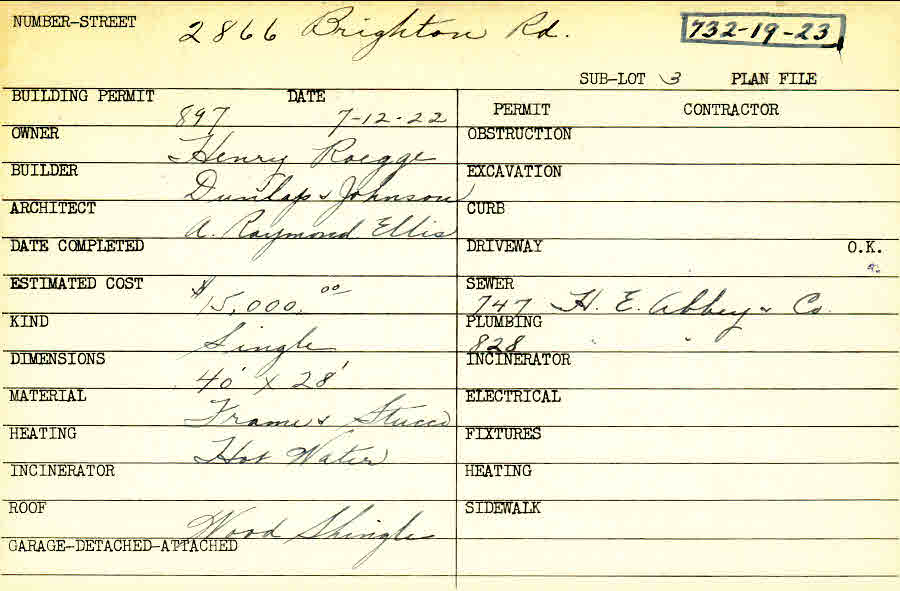 NUMBER-STREET 2866 Brighton Rd. 732-19-23
SUB-LOT 3 PLAN FILE
BUILDING PERMIT DATE
897 7-12-22
PERMIT CONTRACTOR
OWNER Henry Roegge
OBSTRUCTION
BUILDER Dunlap & Johnson
EXCAVATION
ARCHITECT A. Raymond Ellis
CURB
DATE COMPLETED
DRIVEWAY O.K.
ESTIMATED COST $15,000.00
SEWER
747 H. E. Abbey & Co.
KIND Single
PLUMBING
828 " "
DIMENSIONS 40' x 28'
INCINERATOR
MATERIAL Frame & Stucco
ELECTRICAL
HEATING Hot Water
FIXTURES
INCINERATOR
HEATING
ROOF Wood Shingle
SIDEWALK
GARAGE-DETACHED-ATTACHED